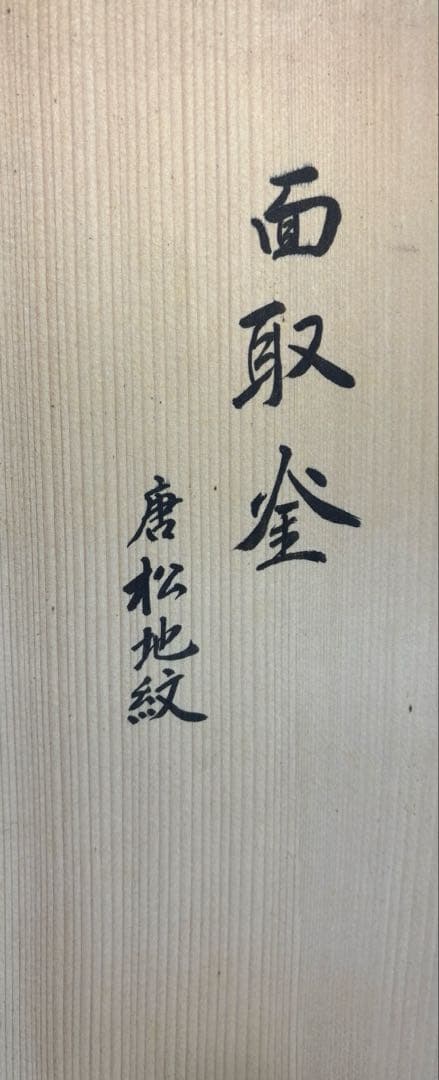 面取釜
唐松地紋